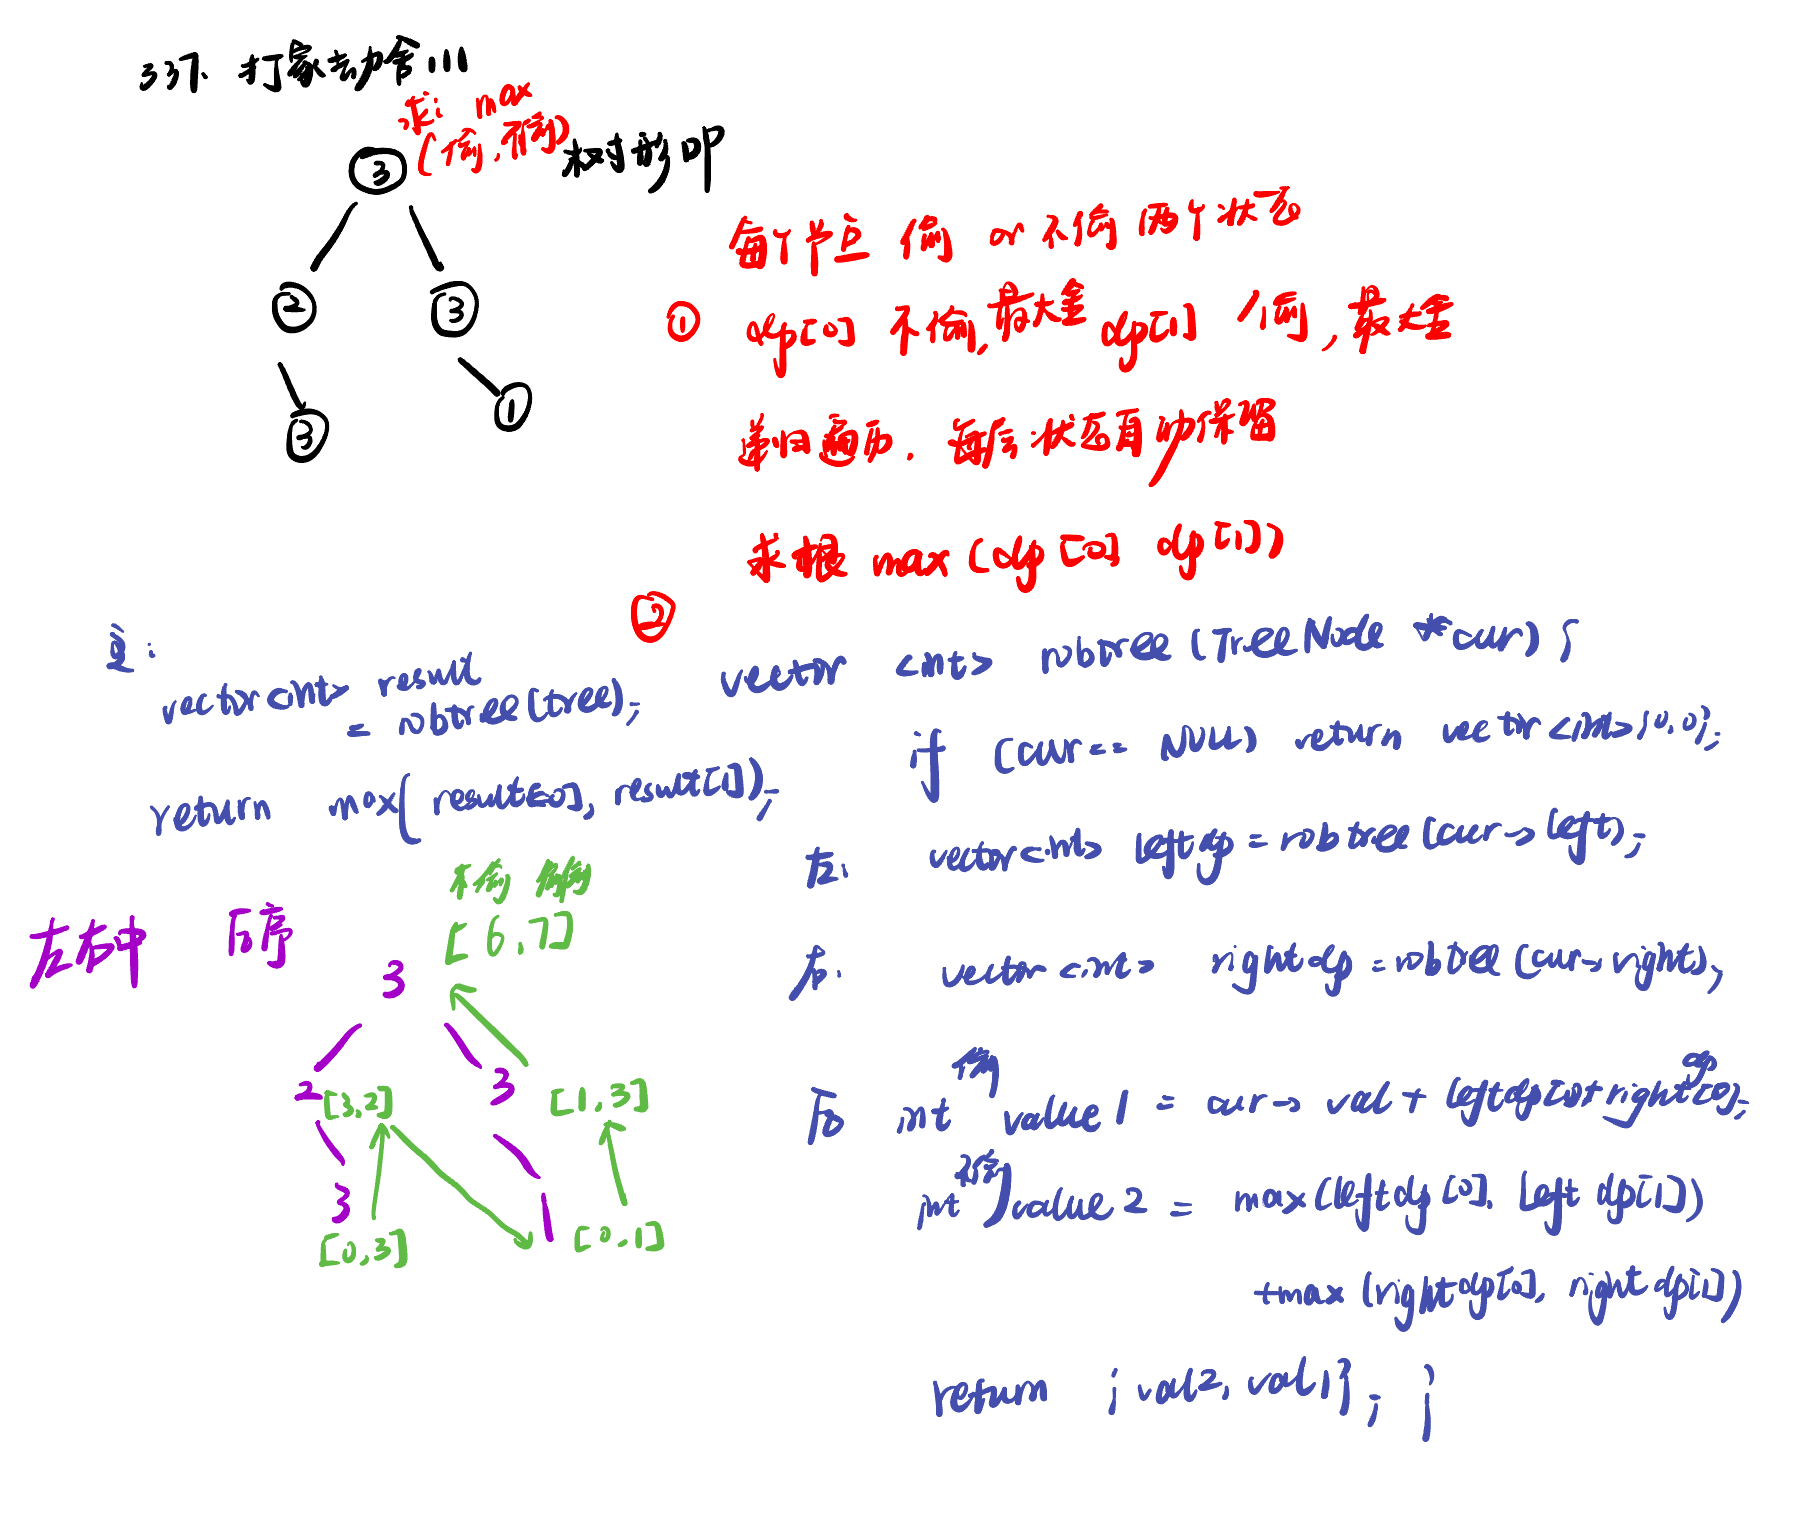 337. 打家劫舍 III
求: max
(偷, 不偷)
树形DP
3
2
3
3
1
每个节点 偷 or 不偷 两个状态
① dp[0] 不偷, 最大金 dp[1] 偷, 最大金
递归遍历. 每层状态自动保留
求根 max (dp[0] dp[1])
②
主:
vector<int> result
= robtree(tree);
return max( result[0], result[1]);
vector <int> robtree (TreeNode *cur) {
if (cur == NULL) return vector<int>{0,0};
左: vector<int> leftdp = robtree(cur->left);
右: vector<int> rightdp = robtree(cur->right);
后 int 偷 value1 = cur->val + leftdp[0]+rightdp[0];
int 不偷 value2 = max(leftdp[0], leftdp[1])
+max (rightdp[0], rightdp[1])
return {val2, val1}; }
左右中 后序
不偷 偷
[6,7]
3
2
[3,2]
3
[1,3]
3
[0,3]
1
[0,1]